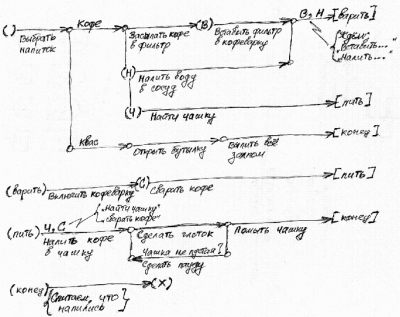 ( ) Кофе (В) В, Н [варить]
Выбрать напиток
Засыпать кофе в фильтр
Вставить фильтр в кофеварку
Ждём: "Вставить..." "Налить..."
(Н) Налить воду в сосуд
(Ч) Найти чашку [пить]
Квас [конец]
Открыть бутылку
Выпить всё залпом
(варить) (С) [пить]
Включить кофеварку
Сварить кофе
(пить) Ч, С "Найти чашку" "Сварить кофе" [конец]
Налить кофе в чашку
Сделать глоток
Помыть чашку
Чашка не пустая?
Сделать паузу
(конец) (X)
Считаем, что напились